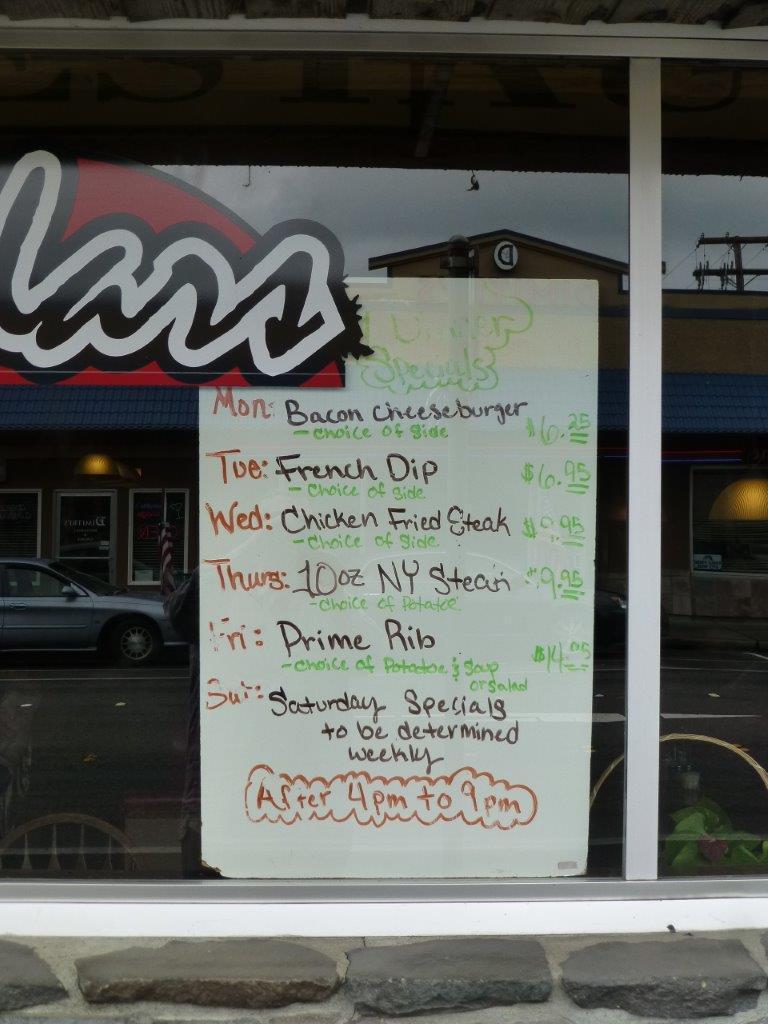 Dinner
Specials
Mon: Bacon Cheeseburger $6.25
- choice of side
Tue: French Dip $6.95
- choice of side
Wed: Chicken Fried Steak $9.95
- choice of side
Thurs: 10oz NY Steak $9.95
- choice of Potatoe
Fri: Prime Rib $14.95
- choice of Potatoe & Soup
or Salad
Sat: Saturday Specials
to be determined
weekly
After 4pm to 9pm